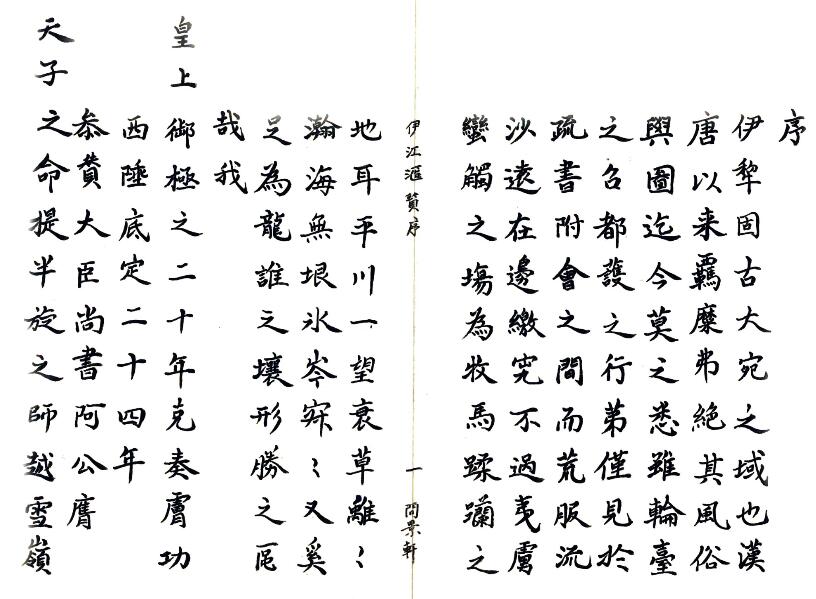 序
伊犂固古大宛之域也漢
唐以来羈縻弗絕其風俗
輿圖迄今莫之悉雖輪臺
之名都護之行苐僅見於
疏書附會之間而荒服流
沙遠在邊繳究不過夷虜
蠻觸之塲為牧馬蹂躪之
伊江滙覽序
一
問景軒
地耳平川一望衰草離〻
瀚海無垠氷岑寂〻又奚
足為龍誰之壤形勝之區
哉我
皇上御極之二十年克奏膚功
西陲底定二十四年
叅賛大臣尚書阿公膺
天子之命提半旋之師越雪嶺